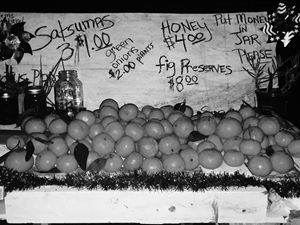 Satsumas
3 $1.00
green
onions
$2.00 plants
Honey
$4.00
fig Preserves
$8.00
Put Money
in
JAR
Please